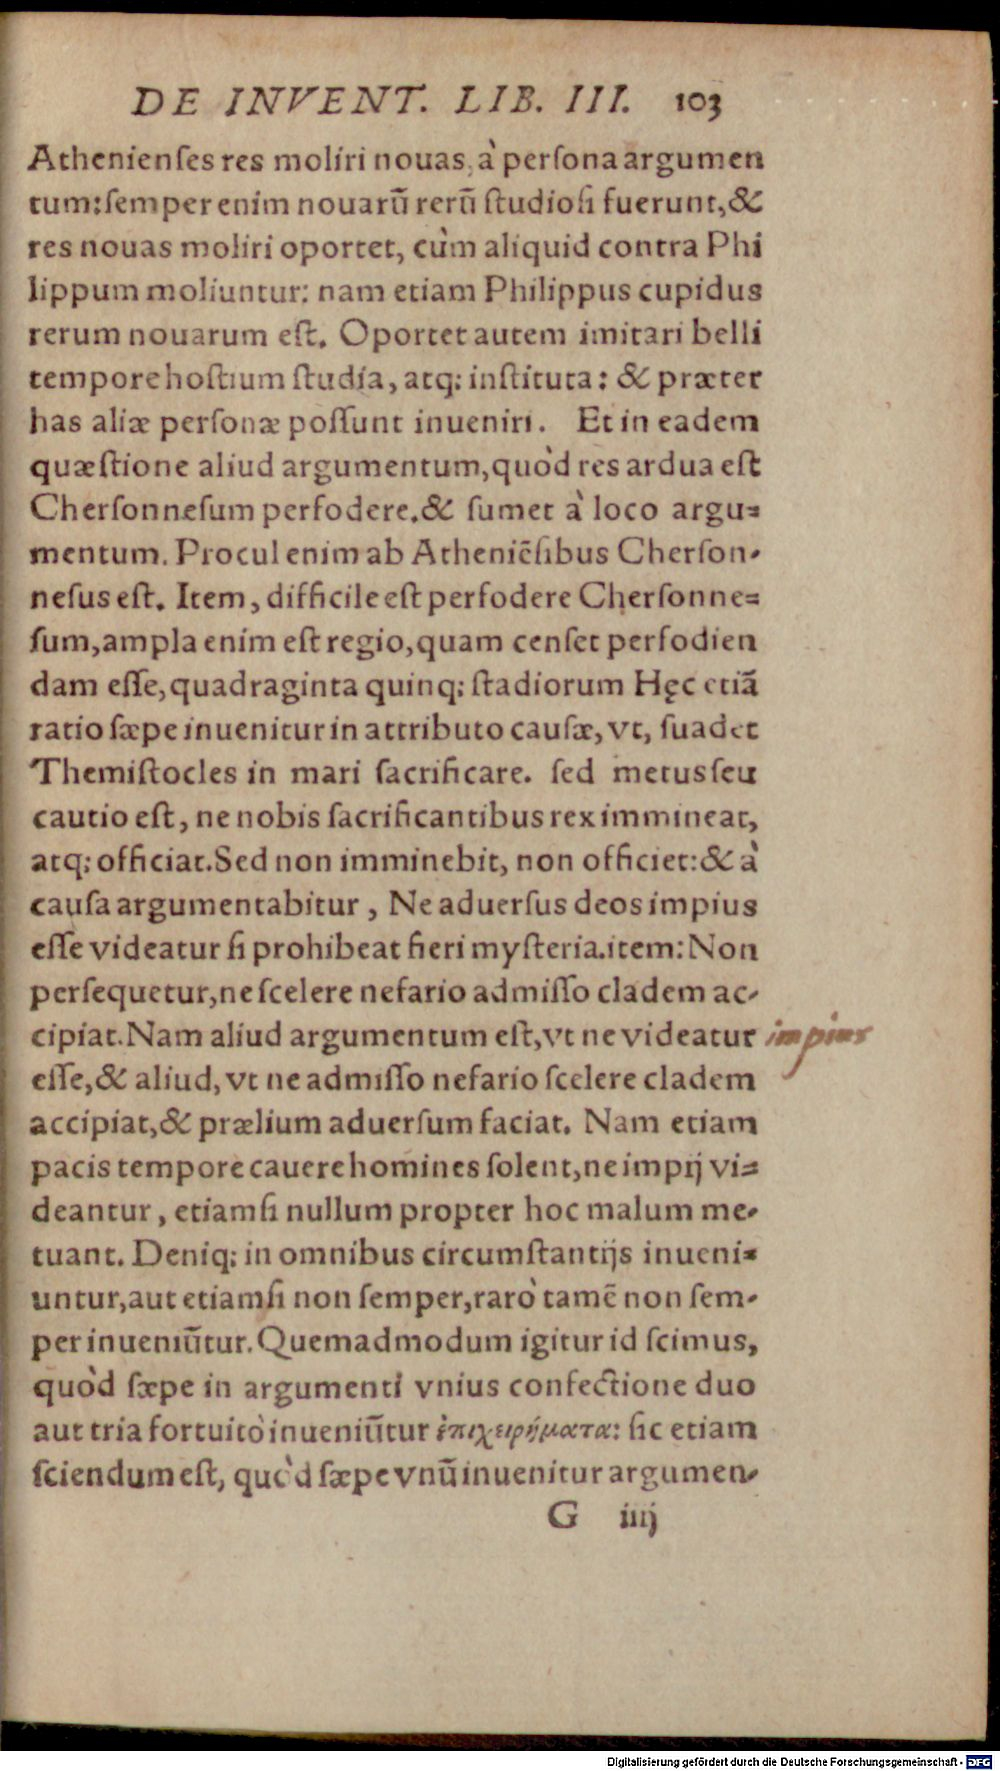 DE INVENT. LIB. III. 103
Athenienses res moliri nouas, à persona argumen
tum: semper enim nouarũ rerũ studiosi fuerunt, &
res nouas moliri oportet, cùm aliquid contra Phi
lippum moliuntur: nam etiam Philippus cupidus
rerum nouarum est. Oportet autem imitari belli
tempore hostium studia, atq; instituta: & præter
has aliæ personæ possunt inueniri. Et in eadem
quæstione aliud argumentum, quòd res ardua est
Chersonnesum perfodere. & sumet à loco argu-
mentum. Procul enim ab Atheniẽsibus Cherson-
nesus est. Item, difficile est perfodere Chersonne-
sum, ampla enim est regio, quam censet perfodien
dam esse, quadraginta quinq; stadiorum Hęc etiã
ratio sæpe inuenitur in attributo causæ, vt, suadet
Themistocles in mari sacrificare. sed metus seu
cautio est, ne nobis sacrificantibus rex immineat,
atq; officiat. Sed non imminebit, non officiet: & à
causa argumentabitur, Ne aduersus deos impius
esse videatur si prohibeat fieri mysteria. item: Non
persequetur, ne scelere nefario admisso cladem ac-
cipiat. Nam aliud argumentum est, vt ne videatur impius
esse, & aliud, vt ne admisso nefario scelere cladem
accipiat, & prælium aduersum faciat. Nam etiam
pacis tempore cauere homines solent, ne impij vi-
deantur, etiamsi nullum propter hoc malum me-
tuant. Deniq; in omnibus circumstantijs inueni-
untur, aut etiamsi non semper, rarò tamẽ non sem-
per inueniũtur. Quemadmodum igitur id scimus,
quòd sæpe in argumenti vnius confectione duo
aut tria fortuitò inueniũtur ἐπιχειρήματα: sic etiam
sciendum est, quòd sæpe vnũ inuenitur argumen-
G iiij
Digitalisierung gefördert durch die Deutsche Forschungsgemeinschaft - DFG